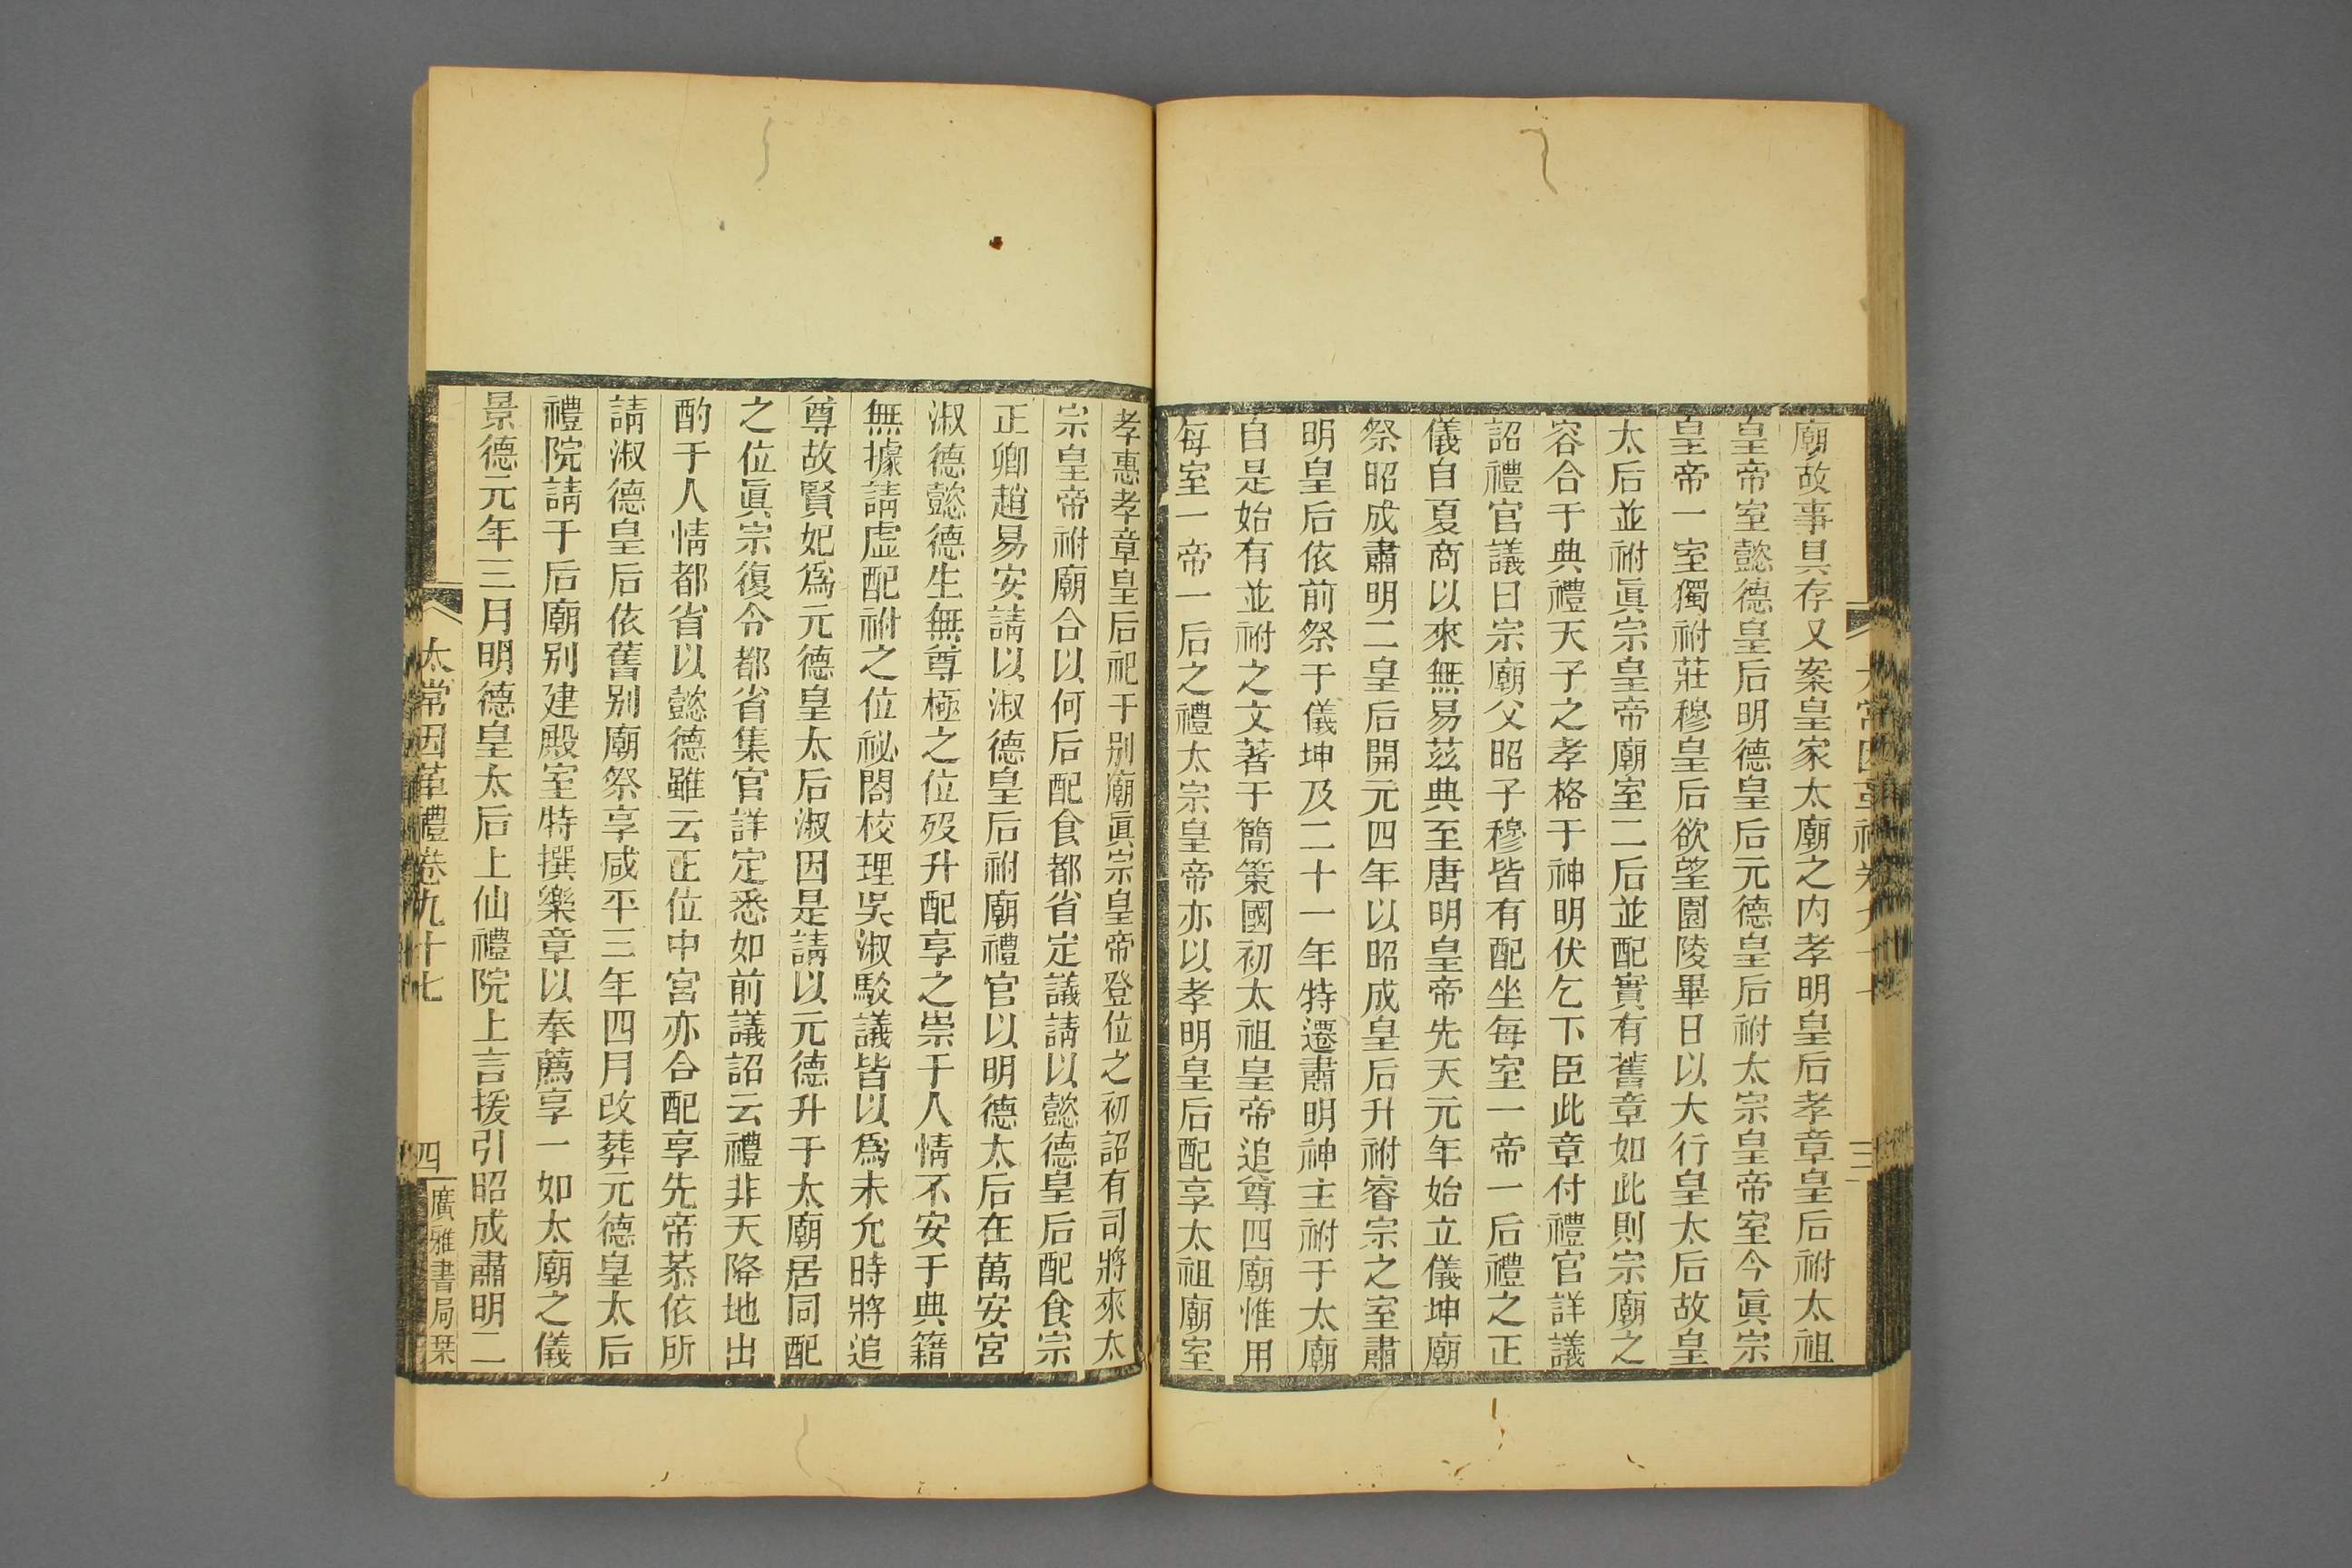 廟故事具存又案皇家太廟之内孝明皇后孝章皇后祔太祖
皇帝室懿德皇后明德皇后元德皇后祔太宗皇帝室今眞宗
皇帝一室獨祔莊穆皇后欲望園陵畢日以大行皇太后故皇
太后並祔眞宗皇帝廟室二后並配實有舊章如此則宗廟之
容合于典禮天子之孝格于神明伏乞下臣此章付禮官詳議
詔禮官議曰宗廟父昭子穆皆有配坐每室一帝一后禮之正
儀自夏商以來無易茲典至唐明皇帝先天元年始立儀坤廟
祭昭成肅明二皇后開元四年以昭成皇后升祔睿宗之室肅
明皇后依前祭于儀坤及二十一年特遷肅明神主祔于太廟
自是始有並祔之文著于簡策國初太祖皇帝追尊四廟惟用
每室一帝一后之禮太宗皇帝亦以孝明皇后配享太祖廟室
孝惠孝章皇后祀于别廟眞宗皇帝登位之初詔有司將來太
宗皇帝祔廟合以何后配食都省定議請以懿德皇后配食宗
正卿趙易安請以淑德皇后祔廟禮官以明德太后在萬安宮
淑德懿德生無尊極之位歿升配享之崇于人情不安于典籍
無據請虚配祔之位祕閣校理吳淑駮議皆以爲未允時將追
尊故賢妃爲元德皇太后淑因是請以元德升于太廟居同配
之位眞宗復令都省集官詳定悉如前議詔云禮非天降地出
酌于人情都省以懿德雖云正位中宮亦合配享先帝恭依所
請淑德皇后依舊别廟祭享咸平三年四月改葬元德皇太后
禮院請于后廟别建殿室特撰樂章以奉薦享一如太廟之儀
景德元年三月明德皇太后上仙禮院上言援引昭成肅明二
太常因革禮卷九十七
四
廣雅書局栞